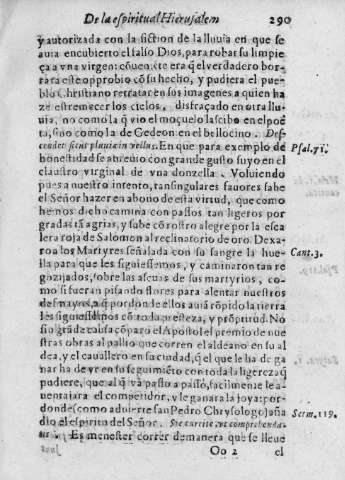 De la espiritual Hierusalem 290
y autorizada con la fiction de la lluuia en que se
auia encubierto el falso Dios, para robar su limpie
ça a vna virgen: cõuenιẽte era q̃ el verdadero bor-
rara este opprobio cõ su hecho, y pudiera el pue-
blo Christiano retratar en sus imagenes a quien ha
ze estremecer los cielos, disfraçado en otra llu-
uia, no como la q̃ vio el moçuelo lasciuo en el poe
ta, sino como la de Gedeon en el bellocino. Des-
cendet sicut pluuia in vellus. En que para exemplo de
honestidad se atreuio con grande gusto suyo en el
claustro virginal de vna donzella. Voluiendo
pues a nuestro intento, tan singulares fauores sabe
el Señor hazer en abono desta virtud, que como
hemos dicho camina con passos tan ligeros por
gradas tã agrias, y sube cõ rostro alegre por la esca
lera roja de Salomon al reclinatorio de oro. Dexa-
rõ los Martyres señalada con su sangre la hue-
lla para que les siguiessemos, y caminaron tan re
gozijados, sobre las ascuas de sus martyrios, co-
mo si fueran pisando flores para alentar nuestros
desmayos, q̃ por don le ellos auiã rõpido la tierra
les siguiessemos cõ toda presteza, y prõptitud. No
sin grãde causa cõparo el Apostol el premio de nue
stras obras al pallio que corren el aldeano en su al
dea, y el cauallero en su ciudad, q̃ el que le ha de ga
nar ha de yr en su seguimiẽto con toda la ligereza q̃
pudiere, que al q̃ va passo a passo, facilmente le a-
uentajara el competidor, y le ganara la joya: por-
donde como aduierte san Pedro Chrysologo, aña
dio el espiritu del Señor. Sic currite, vt comprehenda-
tis. Es menester correr de manera que se lleue
Oo 2 el
Psal. 71.
Cant. 3.
Serm. 119.